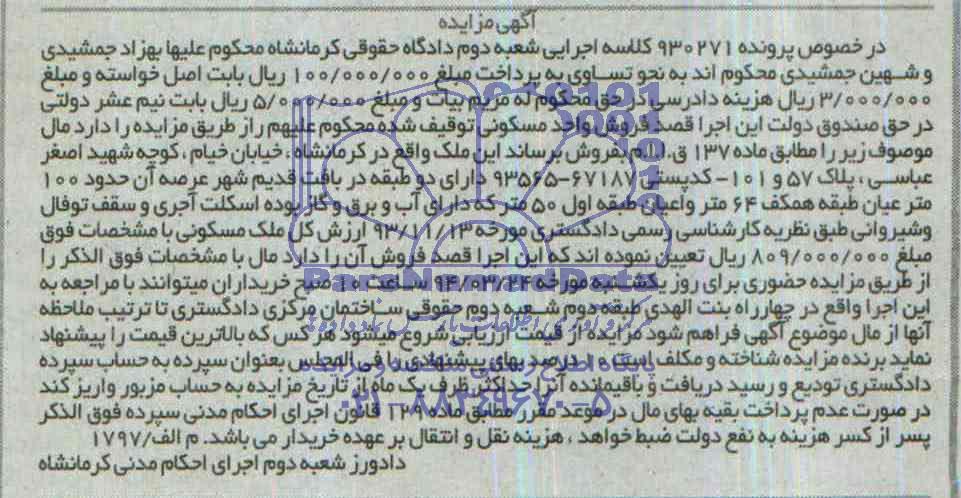 آگهی مزایده
در خصوص پرونده ۹۳۰۲۷۱ کلاسه اجرایی شعبه دوم دادگاه حقوقی کرمانشاه محکوم علیها بهزاد جمشیدی
و شهین جمشیدی محکوم اند به نحو تساوی به پرداخت مبلغ ۱۰۰/۰۰۰/۰۰۰ ریال بابت اصل خواسته و مبلغ
۳/۰۰۰/۰۰۰ ریال هزینه دادرسی در حق محکوم له مریم بیات و مبلغ ۵/۰۰۰/۰۰۰ ریال بابت نیم عشر دولتی
در حق صندوق دولت این اجرا قصد فروش واحد مسکونی توقیف شده محکوم علیهم را از طریق مزایده را دارد مال
موصوف زیر را مطابق ماده ۱۳۷ ق.ا.ا.م بفروش برساند این ملک واقع در کرمانشاه، خیابان خیام، کوچه شهید اصغر
عباسی، پلاک ۵۷ و ۱۰۱- کدپستی ۶۷۱۸۷-۹۳۵۶۵ دارای دو طبقه در بافت قدیم شهر عرصه آن حدود ۱۰۰
متر عیان طبقه همکف ۶۴ متر واعیان طبقه اول ۵۰ متر که دارای آب و برق و گاز بوده اسکلت آجری و سقف توفال
وشیروانی طبق نظریه کارشناسی رسمی دادگستری مورخه ۹۳/۱۱/۱۳ ارزش کل ملک مسکونی با مشخصات فوق
مبلغ ۸۰۹/۰۰۰/۰۰۰ ریال تعیین نموده اند که این اجرا قصد فروش آن را دارد مال با مشخصات فوق الذکر را
از طریق مزایده حضوری برای روز یکشنبه مورخه ۹۴/۰۳/۲۴ ساعت ۱۰ صبح خریداران میتوانند با مراجعه به
این اجرا واقع در چهارراه بنت الهدی طبقه دوم شعبه دوم حقوقی ساختمان مرکزی دادگستری تا ترتیب ملاحظه
آنها از مال موضوع آگهی فراهم شود مزایده از قیمت ارزیابی شروع میشود هر کس که بالاترین قیمت را پیشنهاد
نماید برنده مزایده شناخته و مکلف است ده درصد بهای پیشنهادی را فی المجلس بعنوان سپرده به حساب سپرده
دادگستری تودیع و رسید دریافت و باقیمانده آنرا حداکثر ظرف یک ماه از تاریخ مزایده به حساب مزبور واریز کند
در صورت عدم پرداخت بقیه بهای مال در موعد مقرر مطابق ماده ۱۲۹ قانون اجرای احکام مدنی سپرده فوق الذکر
پسر از کسر هزینه به نفع دولت ضبط خواهد، هزینه نقل و انتقال بر عهده خریدار می باشد. م الف/۱۷۹۷
دادورز شعبه دوم اجرای احکام مدنی کرمانشاه
ParsNamadData
پایگاه اطلاع رسانی مناقصه و مزایده
۰۲۱-۸۸۳۴۹۶۷۰-۵